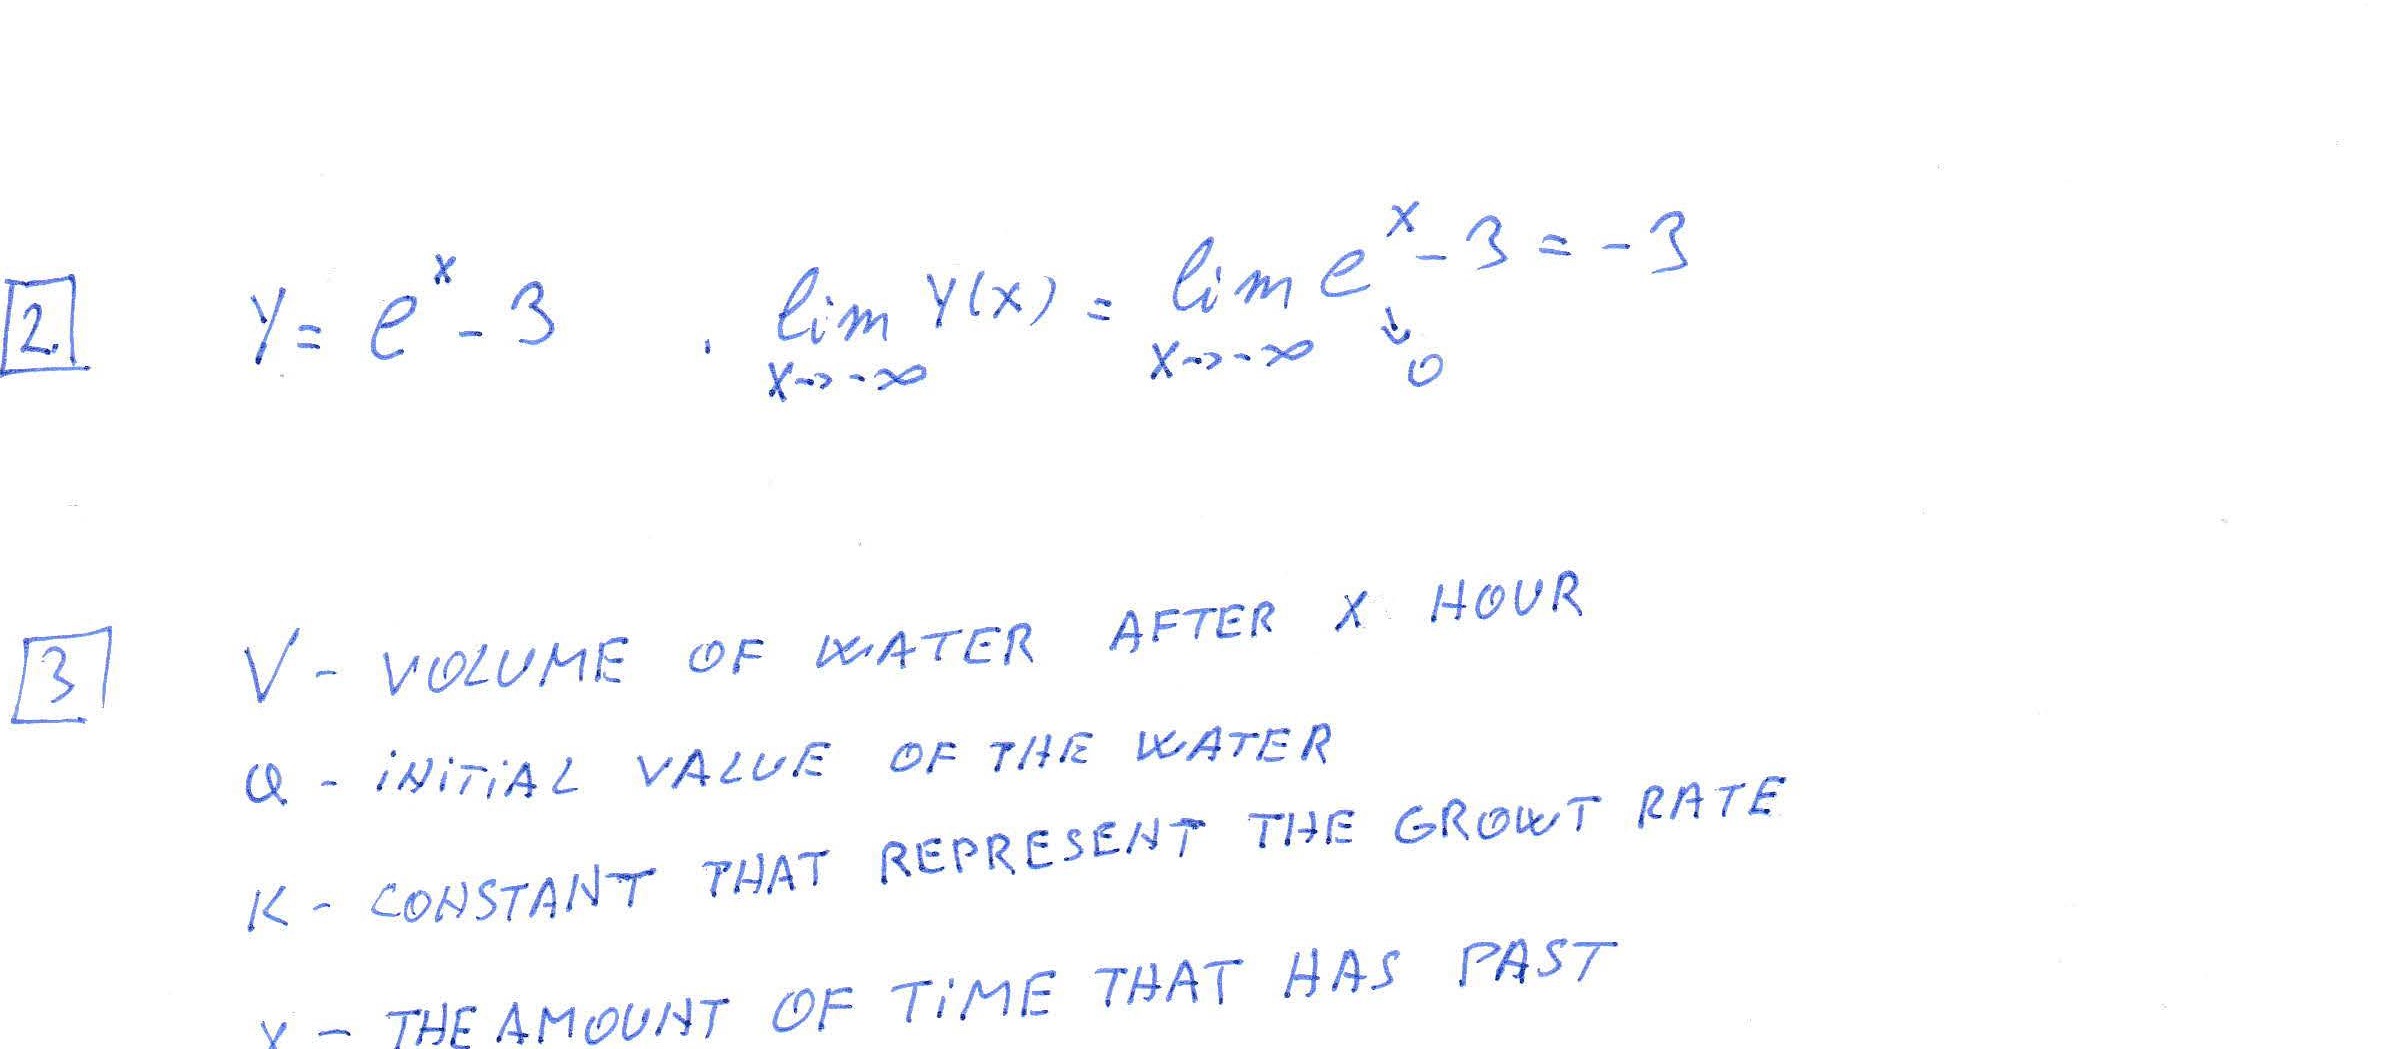 2. Y = e^x - 3 . lim x→-∞ Y(x) = lim x→-∞ e^x - 3 = -3
↓ 0
3 V - VOLUME OF WATER AFTER X HOUR
Q - INITIAL VALUE OF THE WATER
K - CONSTANT THAT REPRESENT THE GROWT RATE
X - THE AMOUNT OF TIME THAT HAS PAST